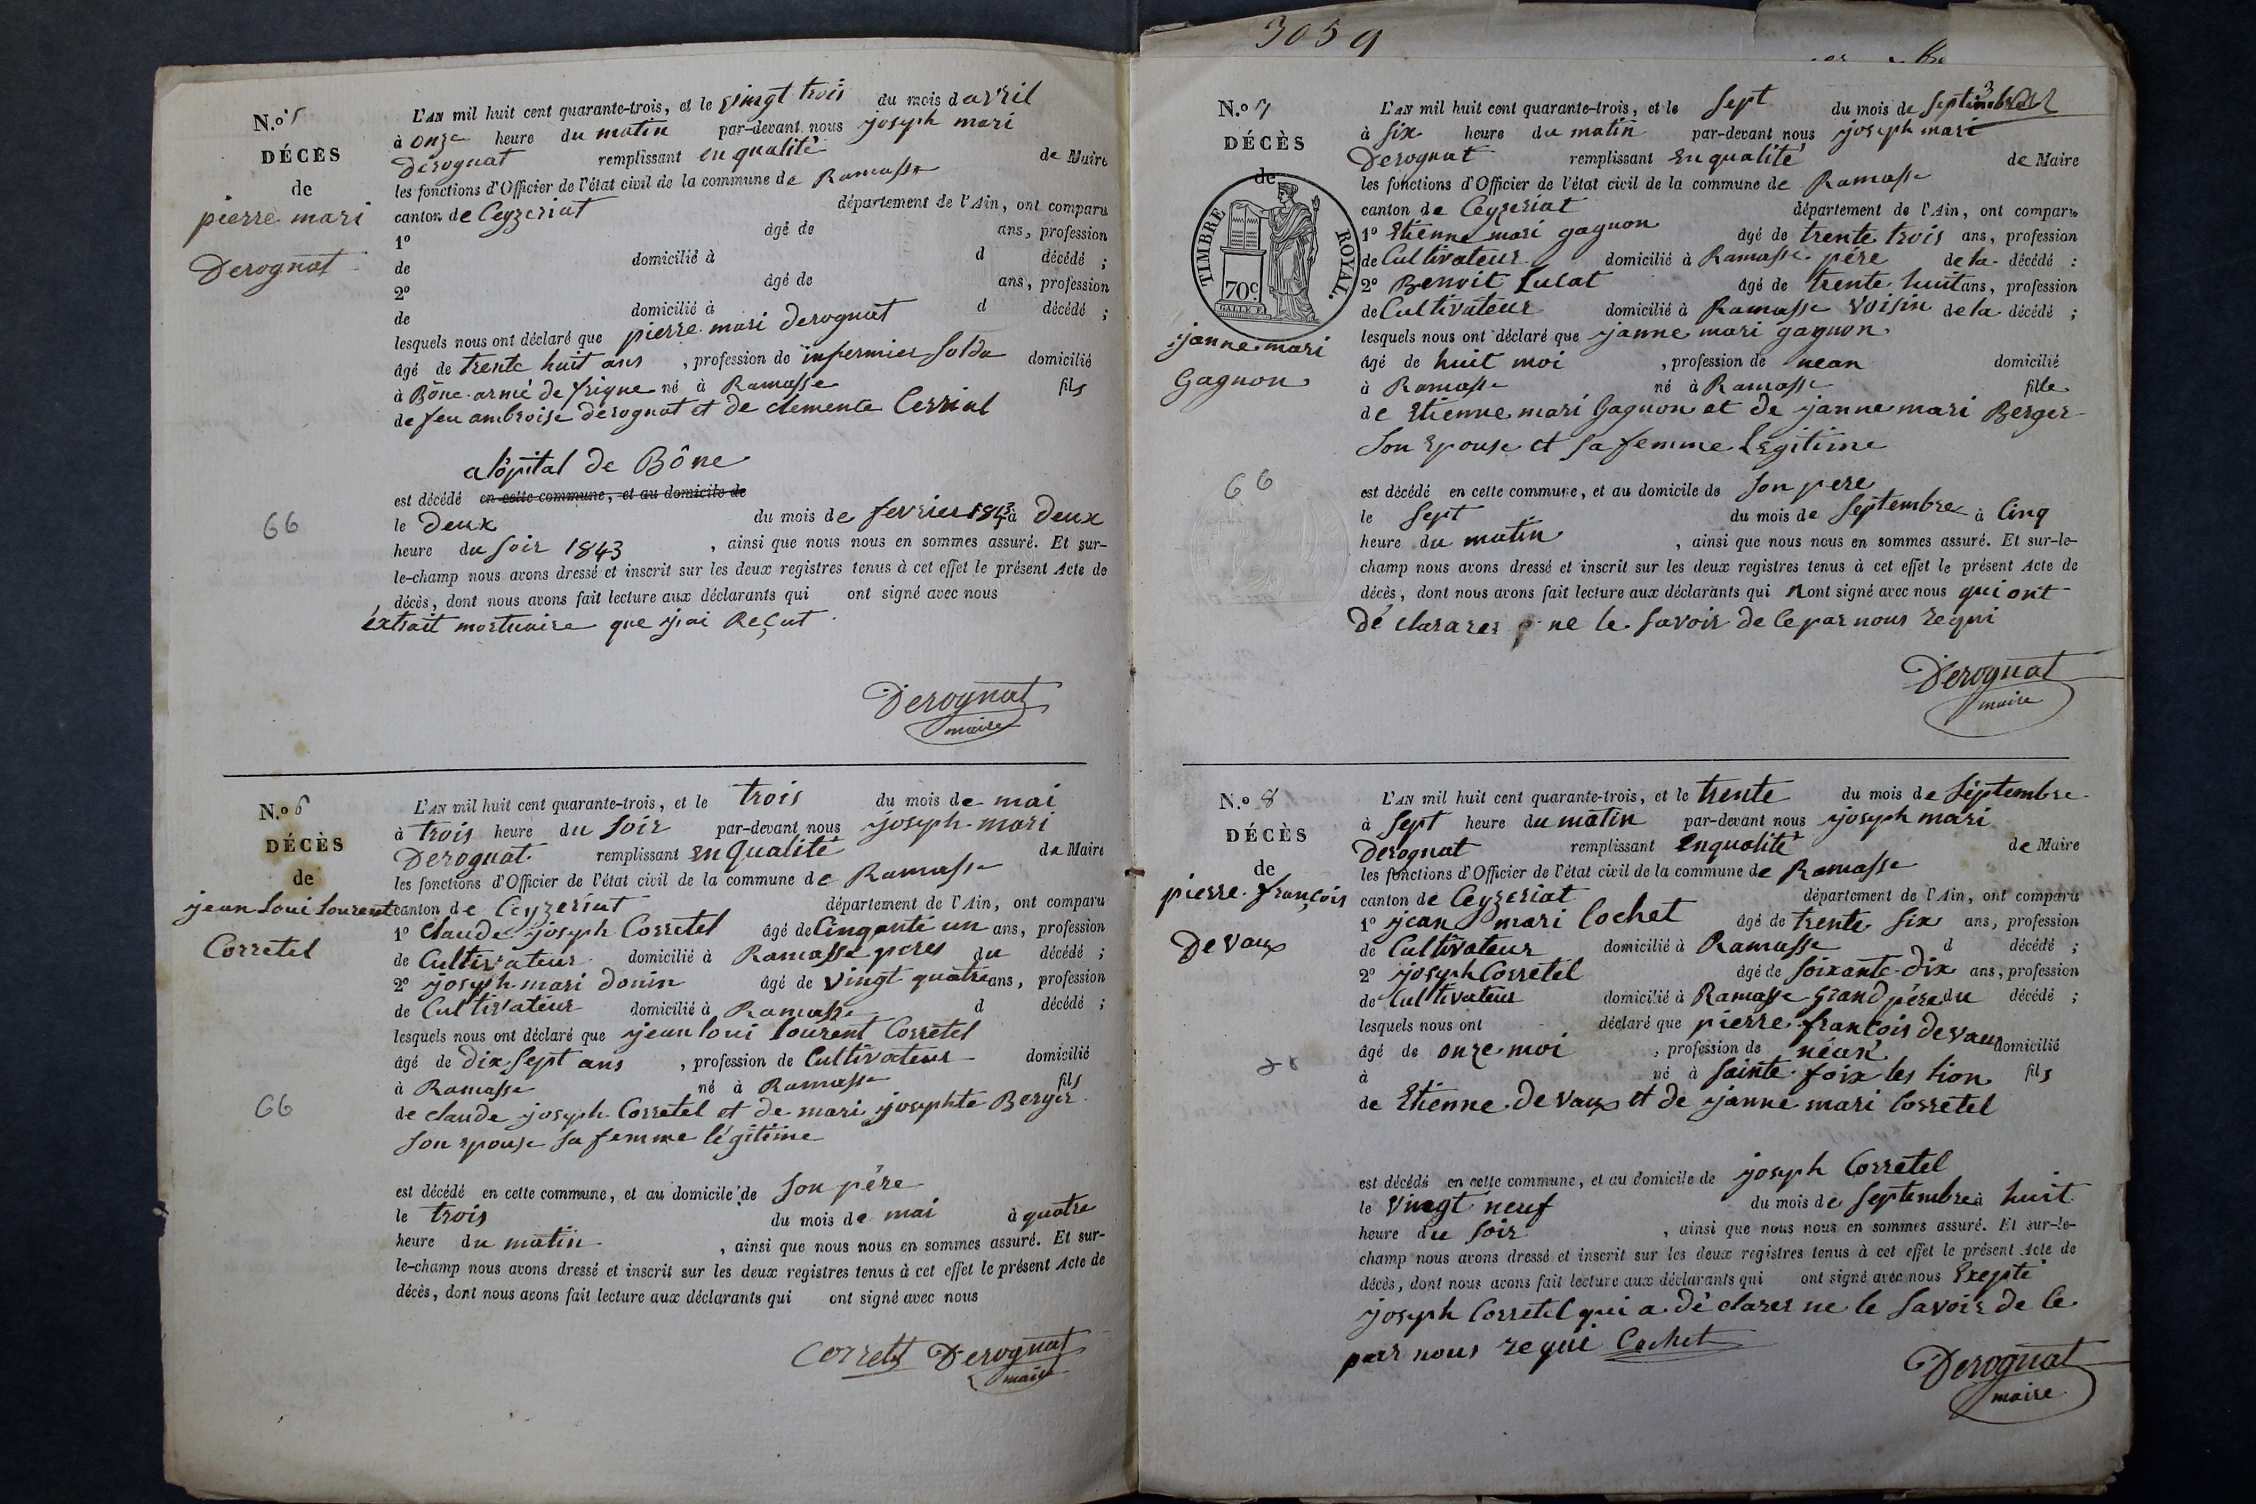 N.º 5
DÉCÈS
de
pierre mari
Derognat
66
L'AN mil huit cent quarante-trois, et le vingt trois du mois d avril
à onze heure du matin par-devant nous joseph mari
Derognat remplissant en qualité de Maire
les fonctions d'Officier de l'état civil de la commune de Ramasse
canton de Ceyzeriat département de l'Ain, ont comparu
1º âgé de ans, profession
de domicilié à d décédé ;
2º âgé de ans, profession
de domicilié à d décédé ;
lesquels nous ont déclaré que pierre mari derognat
âgé de trente huit ans , profession de infermier solda domicilié
à Bône armé de frique né à Ramasse fils
de feu ambroise derognat et de clemente Cerrial
a lôpital de Bône
est décédé en cette commune, et au domicile de
le Deux du mois de fevrier 1843 à Deux
heure du soir 1843 , ainsi que nous nous en sommes assuré. Et sur-
le-champ nous avons dressé et inscrit sur les deux registres tenus à cet effet le présent Acte de
décès, dont nous avons fait lecture aux déclarants qui ont signé avec nous
éxtrait mortuaire que jai Reçut
Derognat
maire
N.º 6
DÉCÈS
de
jean Loui Lourent
Corretel
66
L'AN mil huit cent quarante-trois, et le trois du mois de mai
à trois heure du soir par-devant nous joseph mari
Derognat remplissant en Qualité de Maire
les fonctions d'Officier de l'état civil de la commune de Ramasse
canton de Ceyzeriat département de l'Ain, ont comparu
1º Claude joseph Corretel âgé de Cinqante un ans, profession
de Cultivateur domicilié à Ramasse peres du décédé ;
2º joseph mari donin âgé de vingt quatre ans, profession
de Cultivateur domicilié à Ramasse d décédé ;
lesquels nous ont déclaré que jean loui lourent Corretel
âgé de dix sept ans , profession de Cultivateur domicilié
à Ramasse né à Ramasse fils
de claude joseph Corretel et de mari josephte Berger
son epouse sa femme légitime
est décédé en cette commune, et au domicile de son père
le trois du mois de mai à quatre
heure du matin , ainsi que nous nous en sommes assuré. Et sur-
le-champ nous avons dressé et inscrit sur les deux registres tenus à cet effet le présent Acte de
décès, dont nous avons fait lecture aux déclarants qui ont signé avec nous
Corretel Derognat
maire
3059
N.º 7
DÉCÈS
de
TIMBRE ROYAL.
70c
janne mari
Gagnon
66
L'AN mil huit cent quarante-trois, et le sept du mois de septembre
à six heure du matin par-devant nous joseph mari
Derognat remplissant en qualité de Maire
les fonctions d'Officier de l'état civil de la commune de Ramasse
canton de Ceyzeriat département de l'Ain, ont comparu
1º Etienne mari gagnon âgé de trente trois ans, profession
de Cultivateur domicilié à Ramasse père de la décédé ;
2º Benoit Lulat âgé de trente huit ans, profession
de Cultivateur domicilié à Ramasse voisin de la décédé ;
lesquels nous ont déclaré que janne mari gagnon
âgé de huit moi , profession de nean domicilié
à Ramasse né à Ramasse fille
de Etienne mari Gagnon et de janne mari Berger
son epouse et sa femme legitime
est décédé en cette commune, et au domicile de son pere
le sept du mois de septembre à Cinq
heure du matin , ainsi que nous nous en sommes assuré. Et sur-le-
champ nous avons dressé et inscrit sur les deux registres tenus à cet effet le présent Acte de
décès, dont nous avons fait lecture aux déclarants qui nont signé avec nous qui ont
dé clararer ne le savoir de Ce par nous requi
Derognat
maire
N.º 8
DÉCÈS
de
pierre françois
Devaux
L'AN mil huit cent quarante-trois, et le trente du mois de Septembre
à Sept heure du matin par-devant nous joseph mari
Derognat remplissant en qualité de Maire
les fonctions d'Officier de l'état civil de la commune de Ramasse
canton de Ceyzeriat département de l'Ain, ont comparu
1º jean mari Cochet âgé de trente six ans, profession
de Cultivateur domicilié à Ramasse d décédé ;
2º joseph Corretel âgé de soixante dix ans, profession
de Cultivateur domicilié à Ramasse grand père du décédé ;
lesquels nous ont déclaré que pierre francois devaux
âgé de onze moi , profession de néan domicilié
à né à Sainte foix les lion fils
de Etienne de vaux et de janne mari Corretel
est décédé en cette commune, et au domicile de joseph Corretel
le vingt neuf du mois de septembre à huit
heure du soir , ainsi que nous nous en sommes assuré. Et sur-le-
champ nous avons dressé et inscrit sur les deux registres tenus à cet effet le présent Acte de
décès, dont nous avons fait lecture aux déclarants qui ont signé avec nous Exepté
joseph Corretel qui a dé clarer ne le savoir de Ce
par nous requi Cochet
Derognat
maire